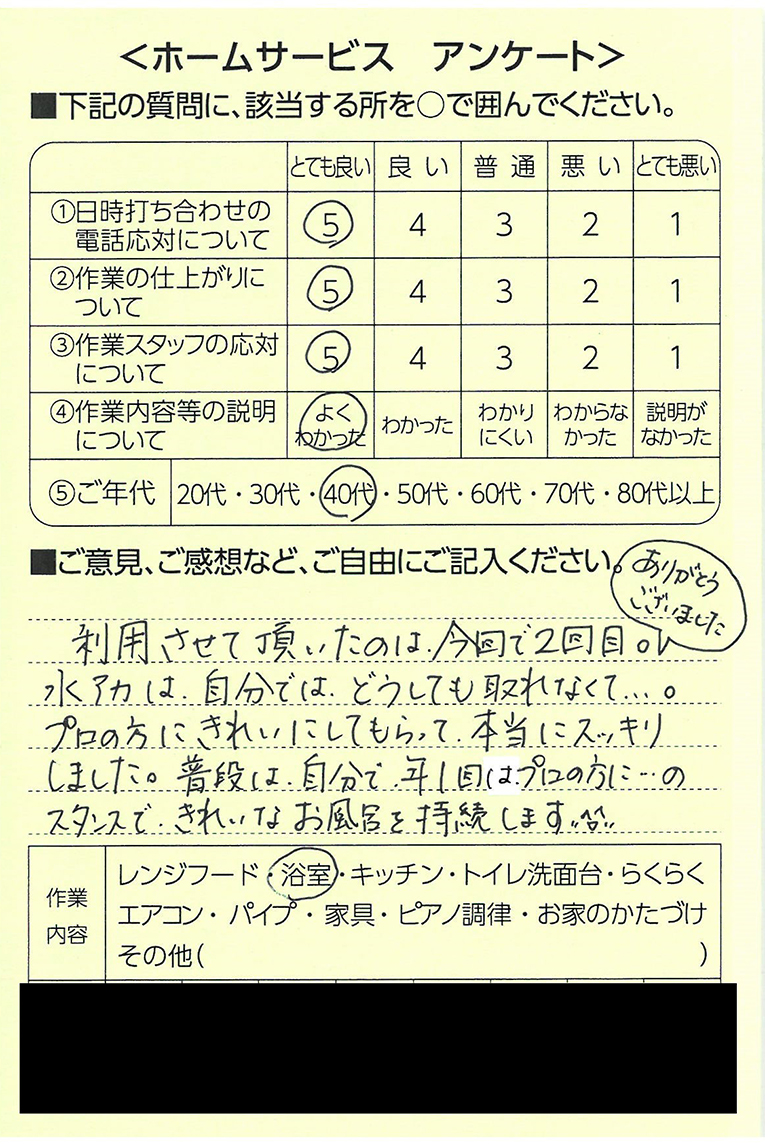 ＜ホームサービス　アンケート＞
■下記の質問に、該当する所を○で囲んでください。
とても良い 良い 普通 悪い とても悪い
①日時打ち合わせの
電話応対について 5 4 3 2 1
②作業の仕上がりに
ついて 5 4 3 2 1
③作業スタッフの応対
について 5 4 3 2 1
④作業内容等の説明
について よくわかった わかった わかりにくい わからなかった 説明がなかった
⑤ご年代 20代・30代・40代・50代・60代・70代・80代以上
■ご意見、ご感想など、ご自由にご記入ください。
ありがとう
ございました
利用させて頂いたのは、今回で2回目。
水アカは、自分では、どうしても取れなくて…。
プロの方にきれいにしてもらって、本当にスッキリ
しました。普段は、自分で、年1回はプロの方に…の
スタンスで、きれいなお風呂を持続します
作業
内容
レンジフード・浴室・キッチン・トイレ洗面台・らくらく
エアコン・パイプ・家具・ピアノ調律・お家のかたづけ
その他(　　　)